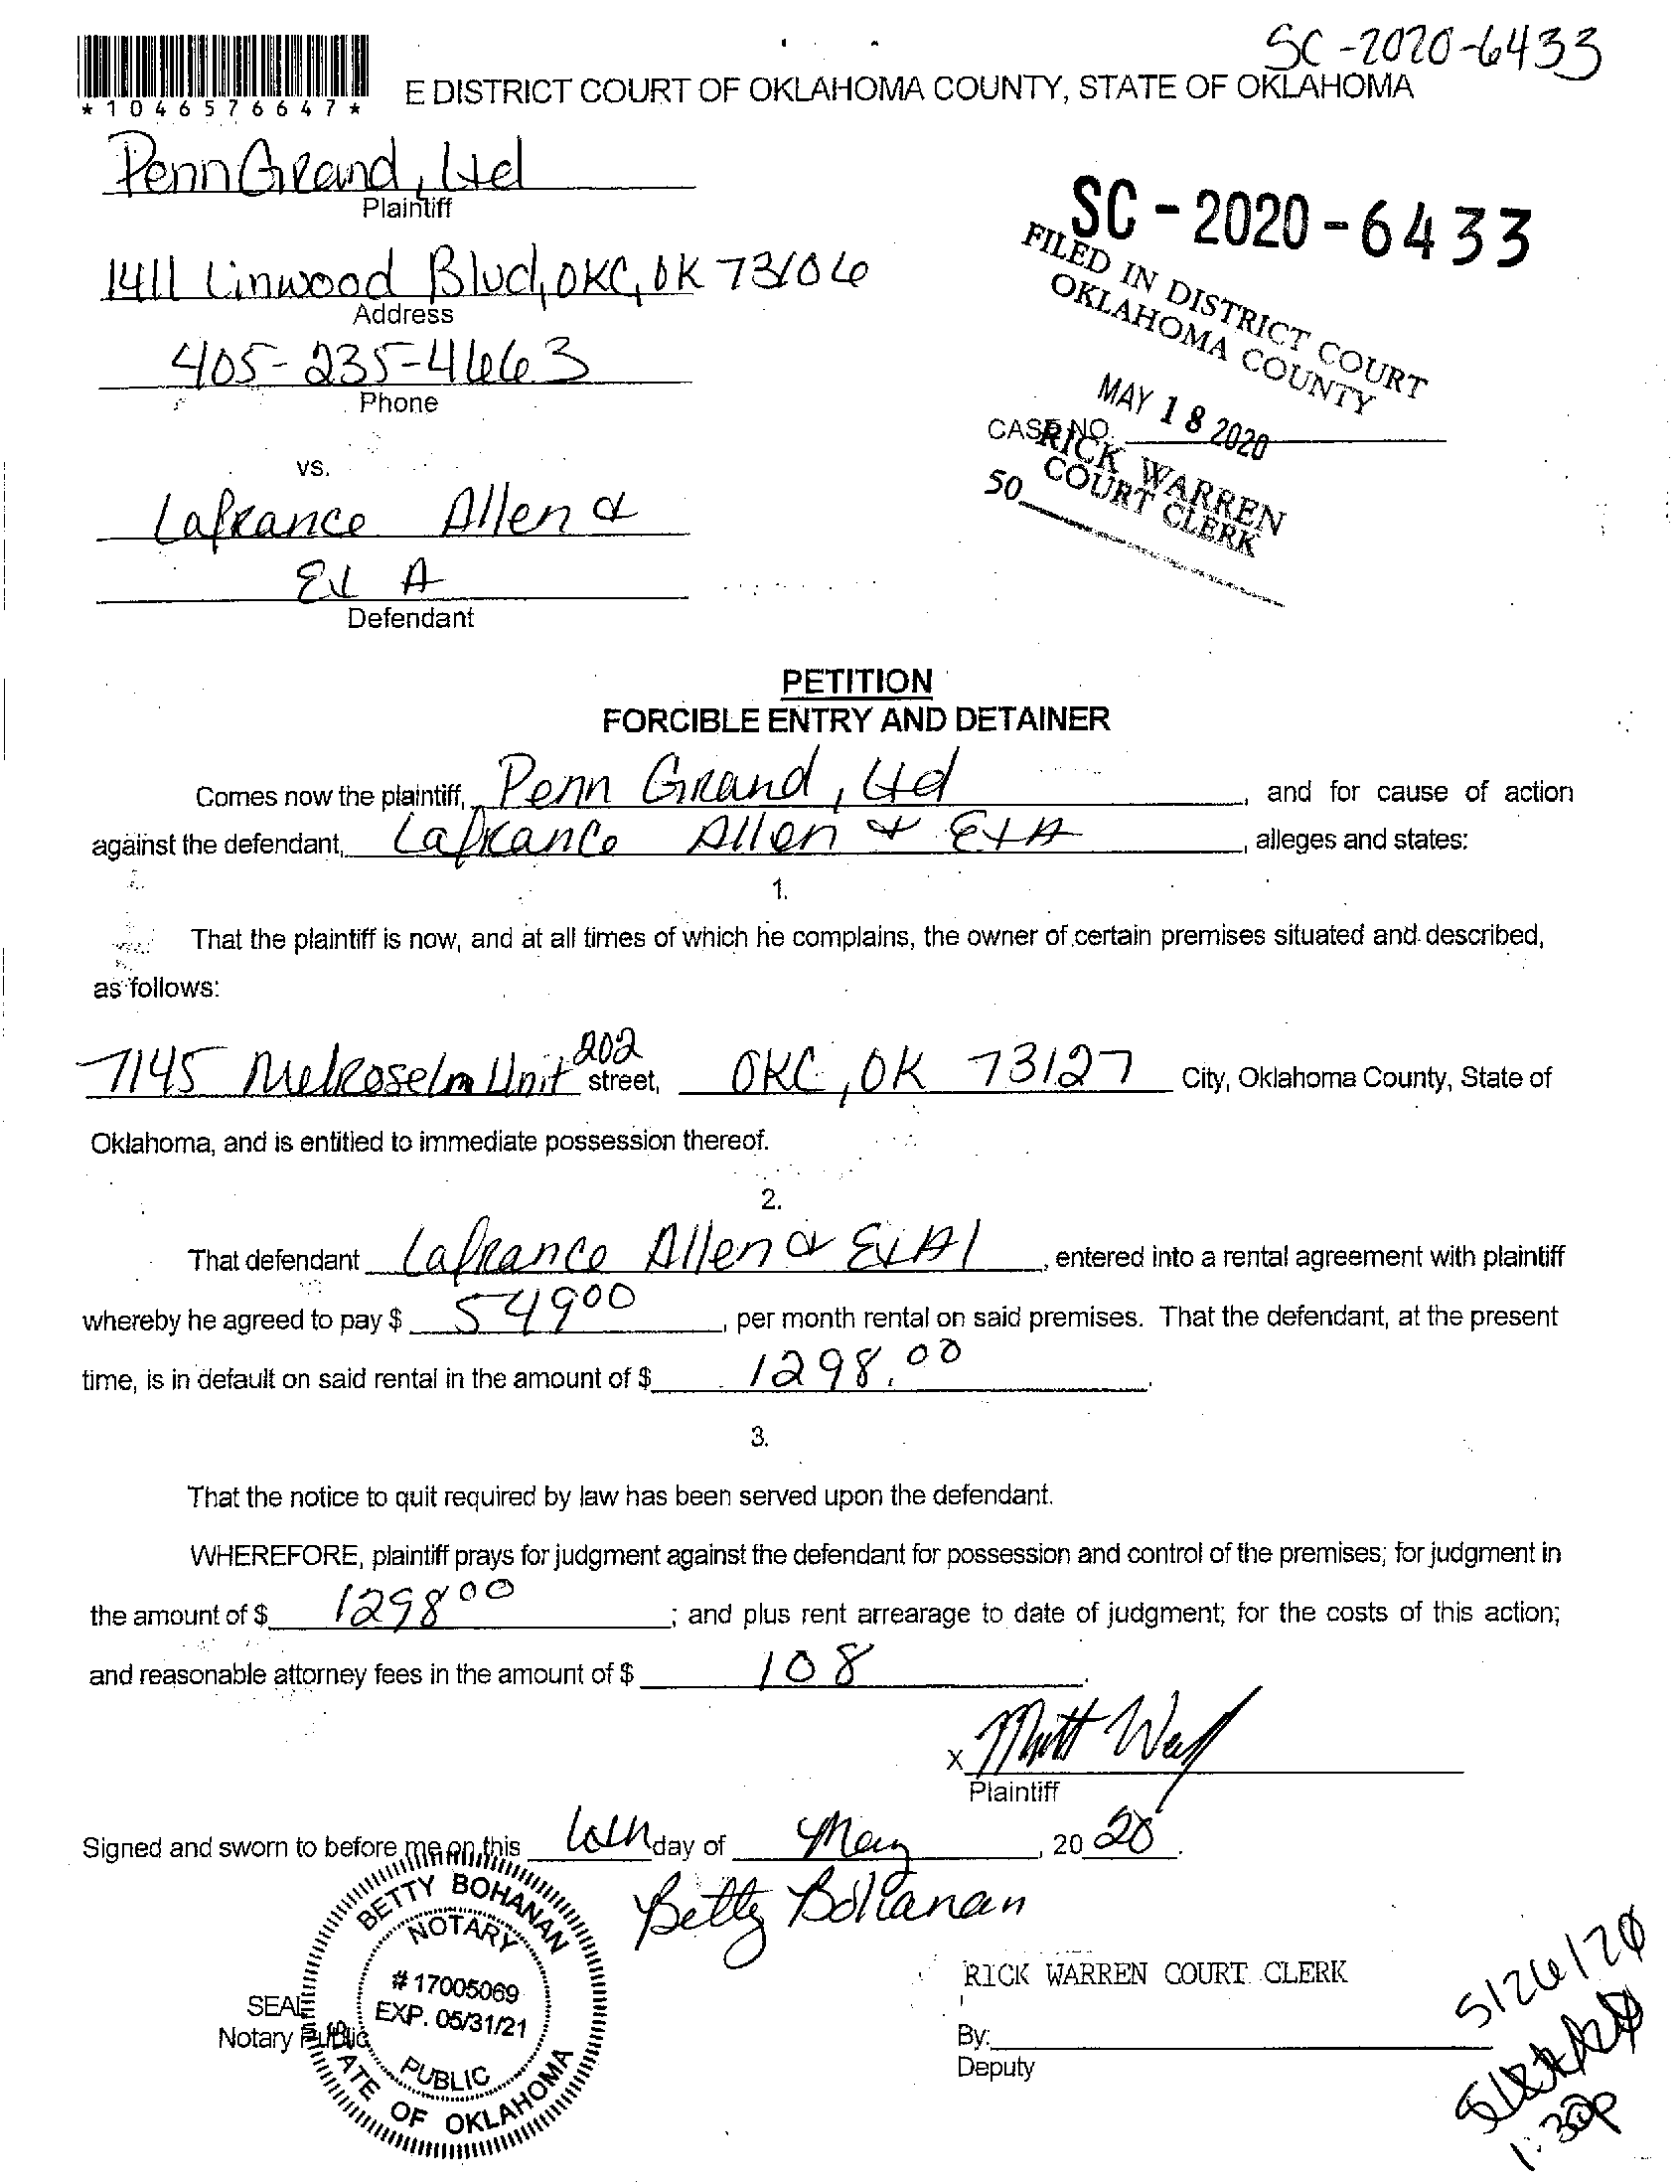 SC-2020-6433
*1046576647*
E DISTRICT COURT OF OKLAHOMA COUNTY, STATE OF OKLAHOMA
Penn Grand, Ltd
Plaintiff
SC-2020-6433
1411 Linwood Blvd, OKC, OK 73106
Address
FILED IN DISTRICT COURT
OKLAHOMA COUNTY
405-235-4663
Phone
MAY 18 2020
CASE NO.
RICK WARREN
COURT CLERK
50
vs.
Lafrance Allen &
Et A
Defendant
PETITION
FORCIBLE ENTRY AND DETAINER
Comes now the plaintiff, Penn Grand, Ltd, and for cause of action
against the defendant, Lafrance Allen & Et A, alleges and states:
1.
That the plaintiff is now, and at all times of which he complains, the owner of certain premises situated and described,
as follows:
7145 Melrose ln Unit 202 street, OKC, OK 73127 City, Oklahoma County, State of
Oklahoma, and is entitled to immediate possession thereof.
2.
That defendant Lafrance Allen & Et Al, entered into a rental agreement with plaintiff
whereby he agreed to pay $ 549 00, per month rental on said premises. That the defendant, at the present
time, is in default on said rental in the amount of $ 1298.00.
3.
That the notice to quit required by law has been served upon the defendant.
WHEREFORE, plaintiff prays for judgment against the defendant for possession and control of the premises; for judgment in
the amount of $ 1298 00; and plus rent arrearage to date of judgment; for the costs of this action;
and reasonable attorney fees in the amount of $ 108.
X Matt
Plaintiff
Signed and sworn to before me on this day of May, 20 20.
Betty Bohanan
BETTY BOHANAN
NOTARY
# 17005069
EXP. 05/31/21
PUBLIC
STATE OF OKLAHOMA
SEAL
Notary Public
RICK WARREN COURT CLERK
By:
Deputy
5/26/20
1:30p